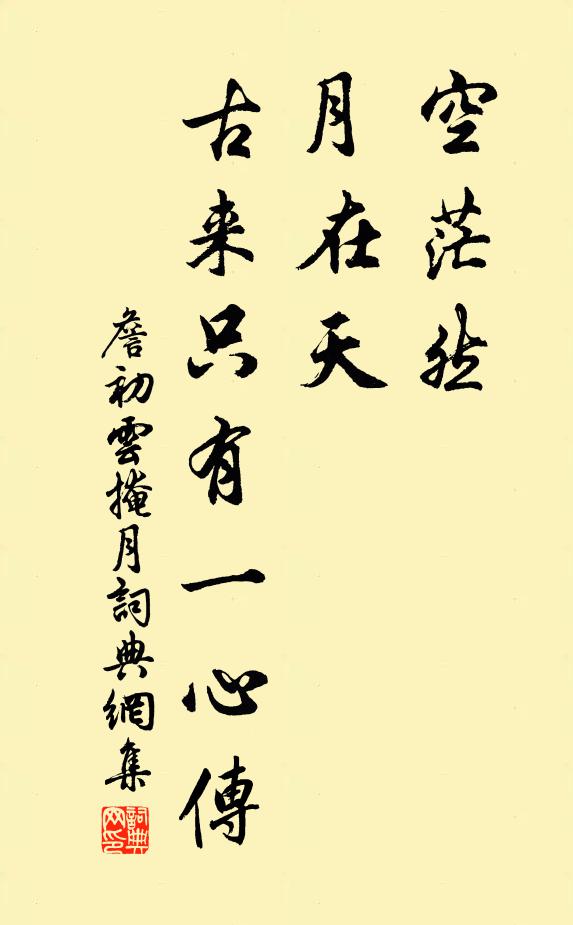 空茫然
月在天
古来只有一心傳
詹初雲掩月詞典網集
詞典网印